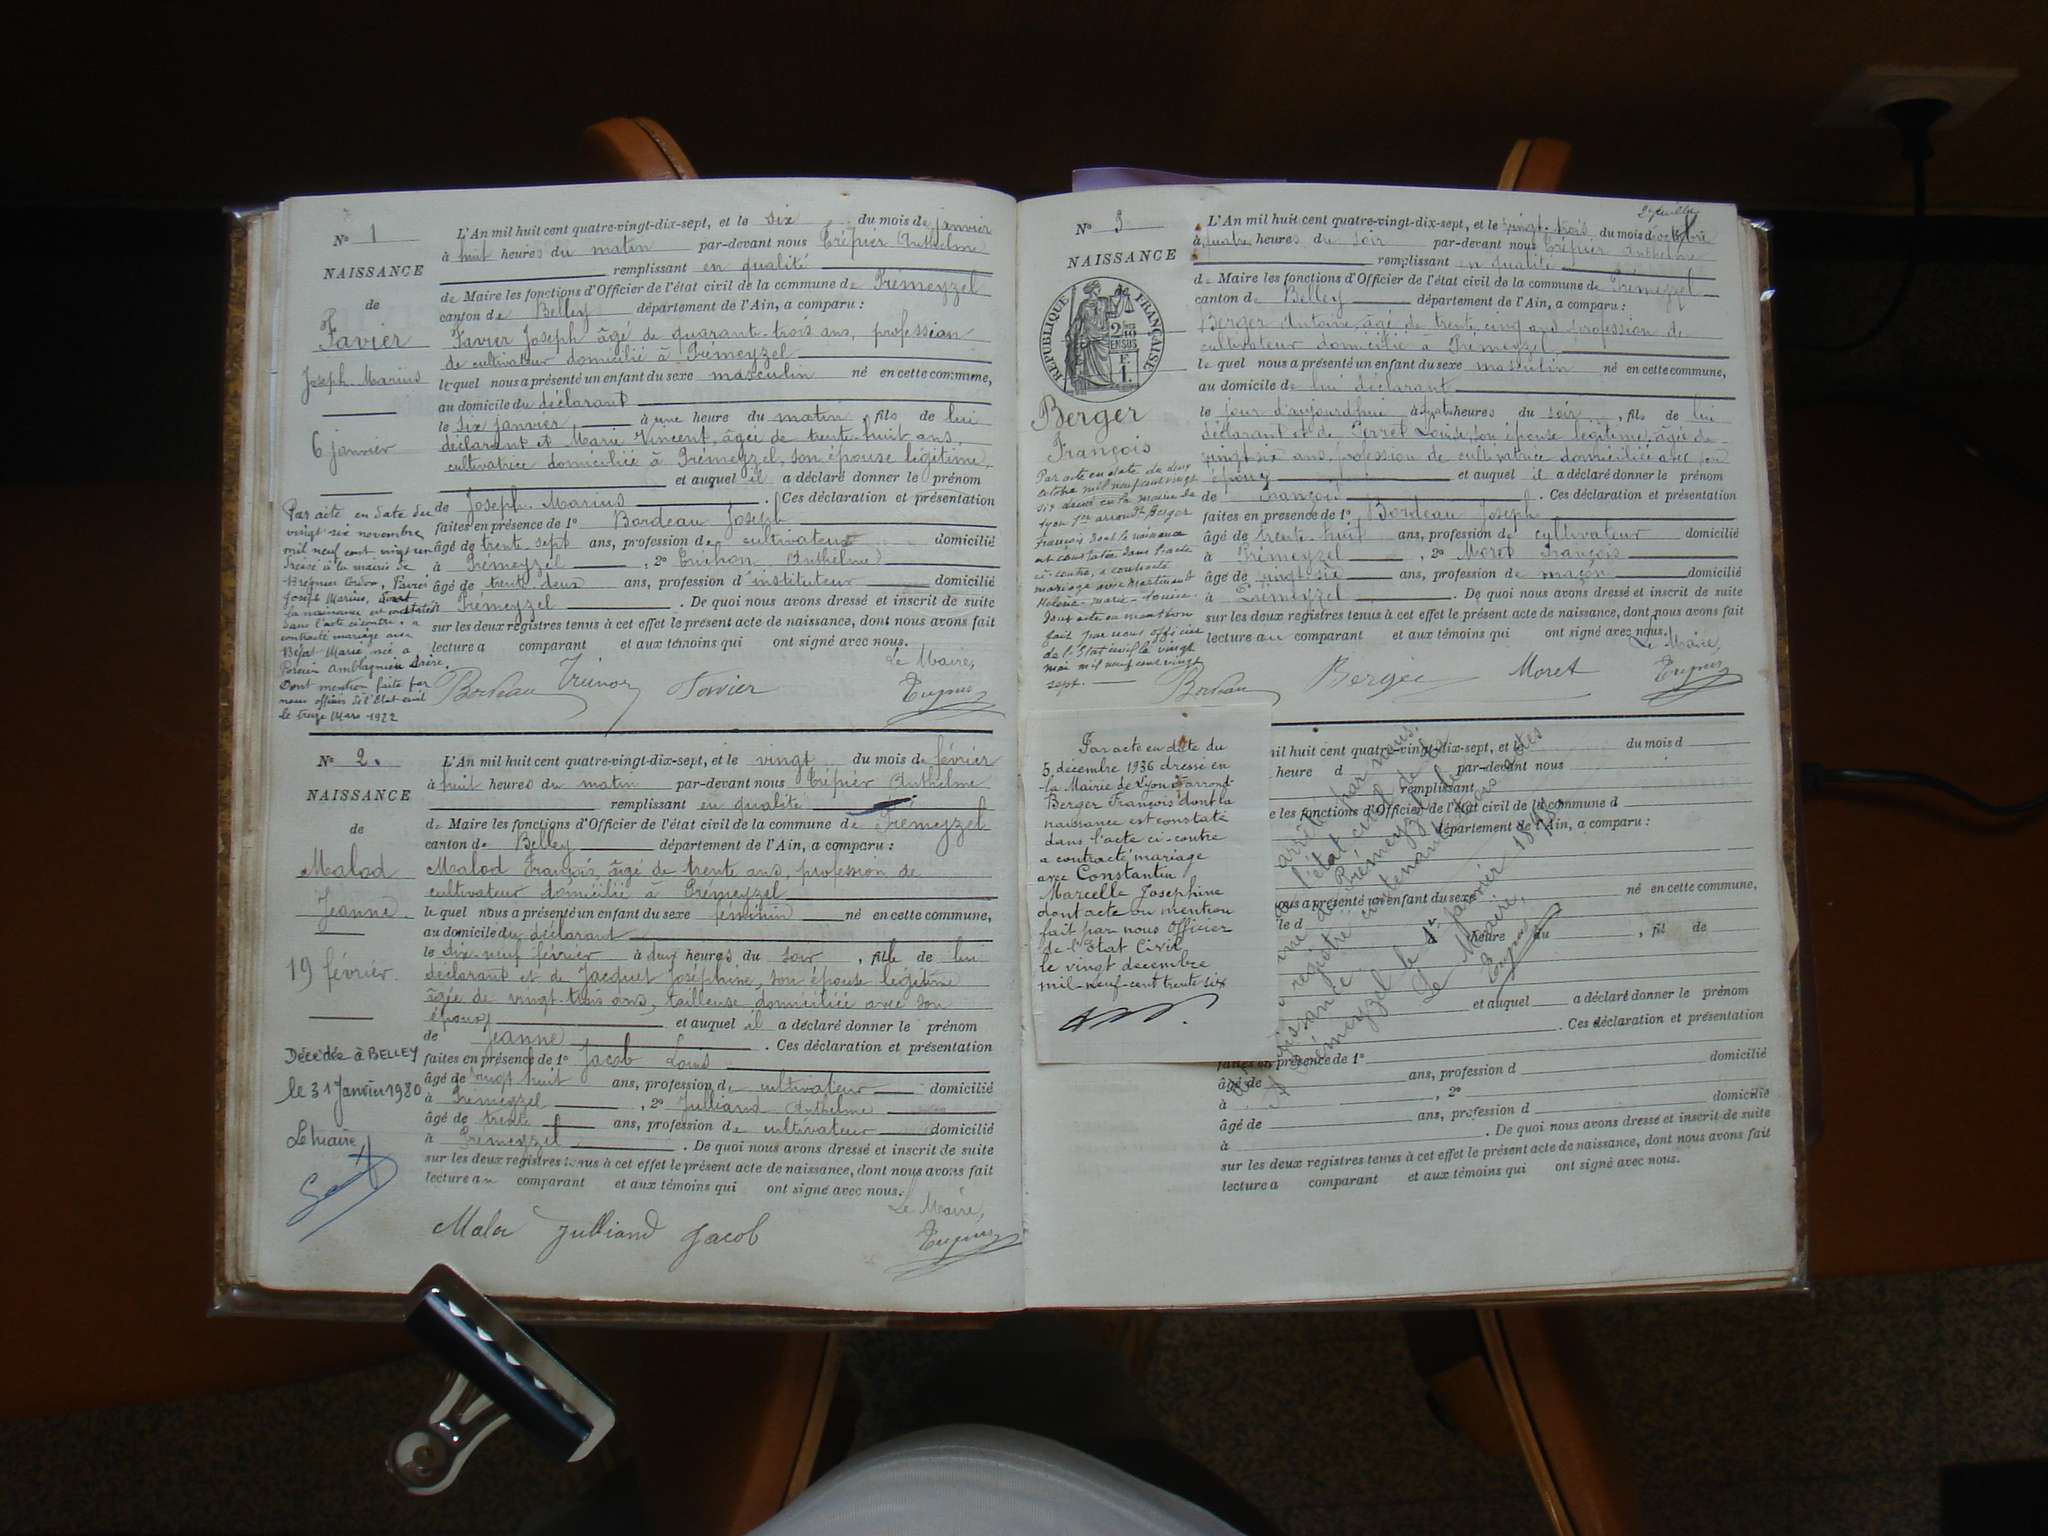 N° 1
NAISSANCE
de
Favier
Joseph-Marius
6 janvier
Par acte en date du
vingt six novembre
mil neuf cent vingt un
dressé à la mairie de
Brégnier Cordon, Favier
Joseph Marius, dont
la naissance est constatée
dans l'acte ci-contre, a
contracté mariage avec
Marie, née à
Dont mention faite par
nous officier de l'Etat civil
le treize Mars 1922
L'An mil huit cent quatre-vingt-dix-sept, et le six du mois de janvier
à huit heures du matin par-devant nous Crépier Anthelme
remplissant en qualité
de Maire les fonctions d'Officier de l'état civil de la commune de Prémeyzel
canton de Belley département de l'Ain, a comparu :
Favier Joseph âgé de quarante-trois ans, profession
de cultivateur domicilié à Prémeyzel
le quel nous a présenté un enfant du sexe masculin né en cette commune,
au domicile du déclarant
le six janvier à une heure du matin, fils de lui
déclarant et Marie Vincent, âgée de trente-huit ans,
cultivatrice domiciliée à Prémeyzel, son épouse légitime,
et auquel il a déclaré donner le prénom
de Joseph-Marius . Ces déclaration et présentation
faites en présence de 1° Bordeau Joseph
âgé de trente-sept ans, profession de cultivateur domicilié
à Prémeyzel , 2° Anthelme
âgé de trente deux ans, profession d'instituteur domicilié
à Prémeyzel . De quoi nous avons dressé et inscrit de suite
sur les deux registres tenus à cet effet le présent acte de naissance, dont nous avons fait
lecture a comparant et aux témoins qui ont signé avec nous.
Le Maire,
Bordeau Favier
N° 2.
NAISSANCE
de
Malod
Jeanne
19 février.
Décédée à BELLEY
le 31 Janvier 1980
Le Maire
L'An mil huit cent quatre-vingt-dix-sept, et le vingt du mois de février
à huit heures du matin par-devant nous Crépier Anthelme
remplissant en qualité
de Maire les fonctions d'Officier de l'état civil de la commune de Prémeyzel
canton de Belley département de l'Ain, a comparu :
Malod François, âgé de trente ans, profession de
cultivateur domicilié à Prémeyzel
le quel nous a présenté un enfant du sexe féminin né en cette commune,
au domicile du déclarant
le dix-neuf février à deux heures du soir , fille de lui
déclarant et de Jacquet Joséphine, son épouse légitime
âgée de vingt-trois ans, tailleuse domiciliée avec son
époux et auquel il a déclaré donner le prénom
de Jeanne . Ces déclaration et présentation
faites en présence de 1° Jacob Louis
âgé de vingt huit ans, profession de cultivateur domicilié
à Prémeyzel , 2° Julliand Anthelme
âgé de trente ans, profession de cultivateur domicilié
à Prémeyzel . De quoi nous avons dressé et inscrit de suite
sur les deux registres tenus à cet effet le présent acte de naissance, dont nous avons fait
lecture au comparant et aux témoins qui ont signé avec nous.
Le Maire,
Malod Julliand Jacob
N° 3
NAISSANCE
de
RÉPUBLIQUE FRANÇAISE
Berger
François
Par acte en date du deux
octobre mil neuf cent vingt
six dressé en la mairie de
Lyon 1er arrondt Berger
François dont la naissance
est constatée dans l'acte
ci-contre, a contracté
mariage avec Martinent
Hélène-Marie-Louise.
Dont acte ou mention
fait par nous officier
de l'Etat civil le vingt
mai mil neuf cent vingt
sept.
L'An mil huit cent quatre-vingt-dix-sept, et le vingt-trois du mois d'octobre
à quatre heures du soir par-devant nous Crépier Anthelme
remplissant en qualité
de Maire les fonctions d'Officier de l'état civil de la commune de Prémeyzel
canton de Belley département de l'Ain, a comparu :
Berger Antoine, âgé de trente cinq ans profession de
cultivateur domicilié à Prémeyzel
le quel nous a présenté un enfant du sexe masculin né en cette commune,
au domicile de lui déclarant
le jour d'aujourd'hui à heures du soir , fils de lui
déclarant et de Perret Louise, son épouse légitime, âgée de
vingt-six ans, profession de cultivatrice domiciliée avec son
époux et auquel il a déclaré donner le prénom
de François . Ces déclaration et présentation
faites en présence de 1° Bordeau Joseph
âgé de trente-huit ans, profession de cultivateur domicilié
à Prémeyzel , 2° Moret François
âgé de vingt-six ans, profession de maçon domicilié
à Prémeyzel . De quoi nous avons dressé et inscrit de suite
sur les deux registres tenus à cet effet le présent acte de naissance, dont nous avons fait
lecture au comparant et aux témoins qui ont signé avec nous.
Le Maire,
Bordeau Berger Moret
Par acte en date du
5 décembre 1936 dressé en
la Mairie de Lyon arrond
Berger François dont la
naissance est constatée
dans l'acte ci-contre
a contracté mariage
avec Constantin
Marcelle Josephine
dont acte ou mention
fait par nous Officier
de l'Etat Civil
le vingt decembre
mil-neuf-cent trente six
mil huit cent quatre-vingt-dix-sept, et le du mois d
heure d par-devant nous
remplissant
les fonctions d'Officier de l'état civil de la commune d
département de l'Ain, a comparu :
nous a présenté un enfant du sexe né en cette commune,
le d
heure du , fil de
et auquel a déclaré donner le prénom
. Ces déclaration et présentation
faites en présence de 1°
âgé de ans, profession d domicilié
à , 2°
âgé de ans, profession d domicilié
à . De quoi nous avons dressé et inscrit de suite
sur les deux registres tenus à cet effet le présent acte de naissance, dont nous avons fait
lecture a comparant et aux témoins qui ont signé avec nous.
arrêté par nous,
l'état civil de la
Prémeyzel le
registre contenant trois actes
de naissance.
A Prémeyzel le 1er janvier
Le Maire,